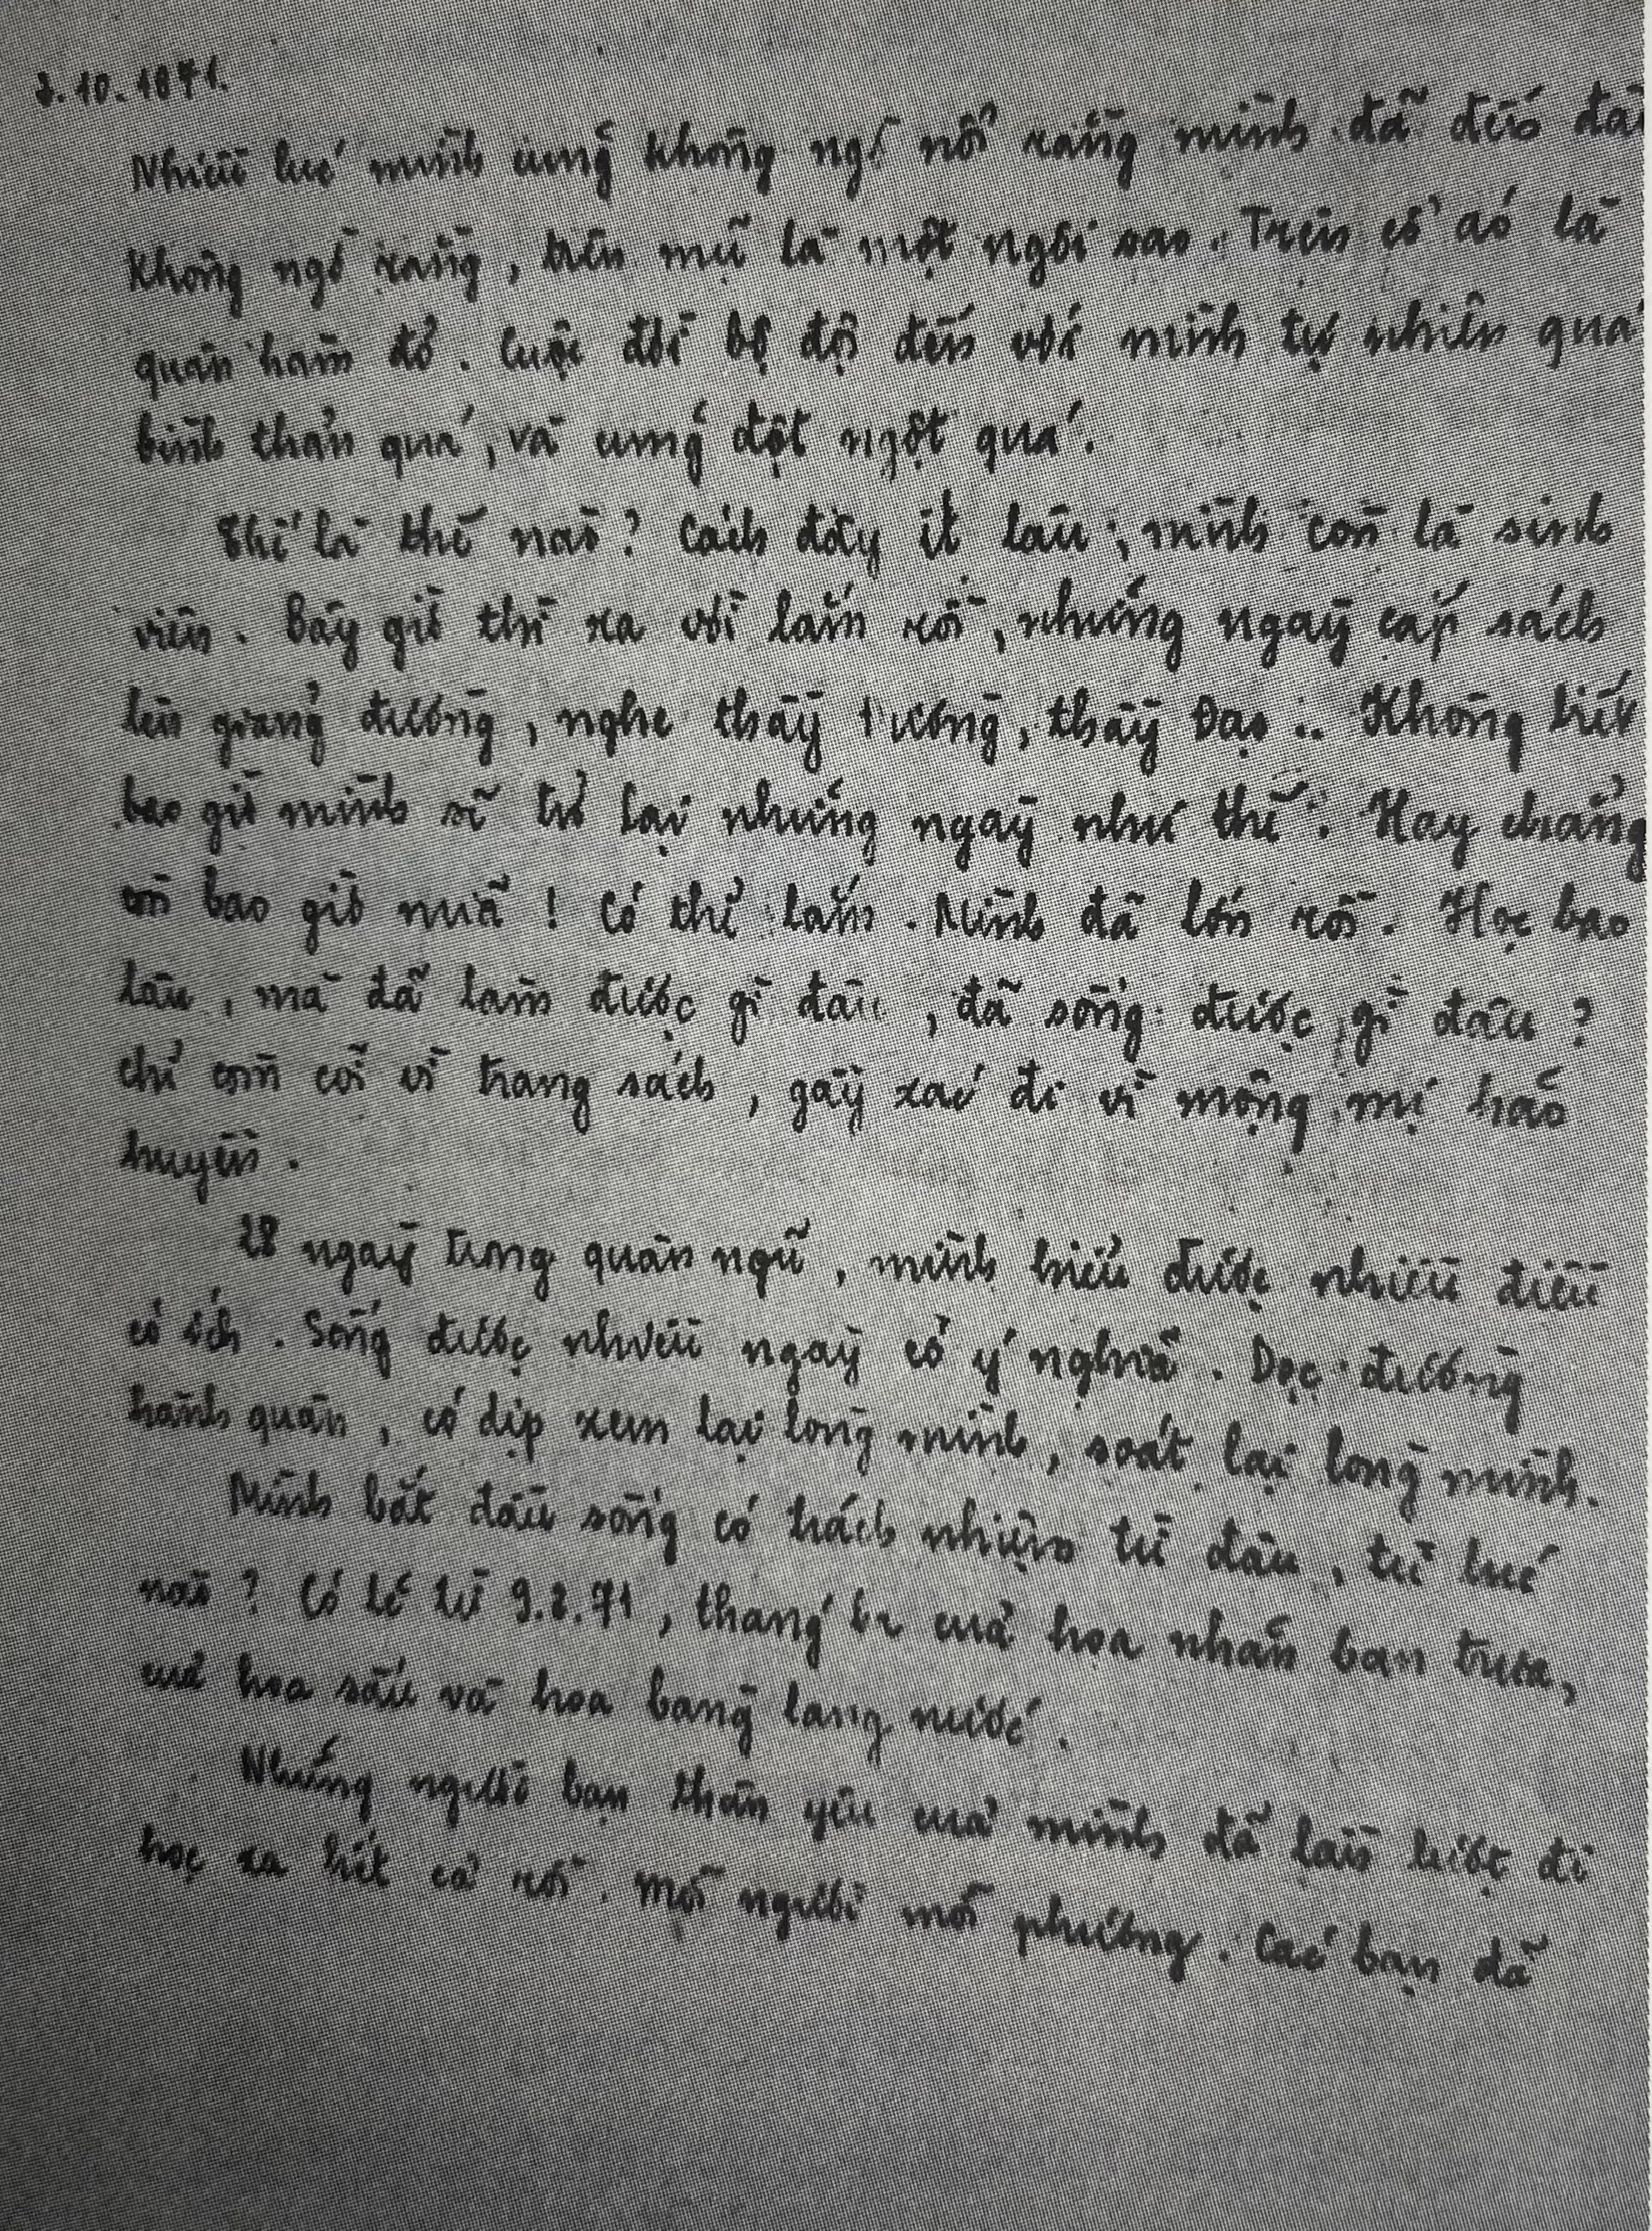 2.10.1971.
Nhiều lúc mình cũng không ngờ nổi rằng mình đã đến đây
Không ngờ rằng, trên mũ là một ngôi sao. Trên cổ áo là
quân hàm đỏ. Cuộc đời bộ đội đến với mình tự nhiên quá
bình thản quá, và cũng đột ngột quá.
Thế là thế nào? Cách đây ít lâu, mình còn là sinh
viên. Bây giờ thì xa vời lắm rồi, những ngày cắp sách
lên giảng đường, nghe thầy Đường, thầy Đạo... Không biết
bao giờ mình sẽ trở lại những ngày như thế. Hay chẳng
còn bao giờ nữa! Có thể lắm. Mình đã lớn rồi. Học bao
lâu, mà đã làm được gì đâu, đã sống được gì đâu?
Chỉ còm cõi vì trang sách, gầy xác đi vì mộng mị hão
huyền.
28 ngày trong quân ngũ, mình hiểu được nhiều điều
có ích. Sống được nhiều ngày có ý nghĩa. Dọc đường
hành quân, có dịp xem lại lòng mình, soát lại lòng mình.
Mình bắt đầu sống có trách nhiệm từ đâu, từ lúc
nào? Có lẽ từ 9.3.71, tháng ba của hoa nhãn ban trưa,
của hoa sấu và hoa bằng lăng nước.
Những người bạn thân yêu của mình đã lần lượt đi
học xa hết cả rồi. mỗi người mỗi phương. Các bạn đã